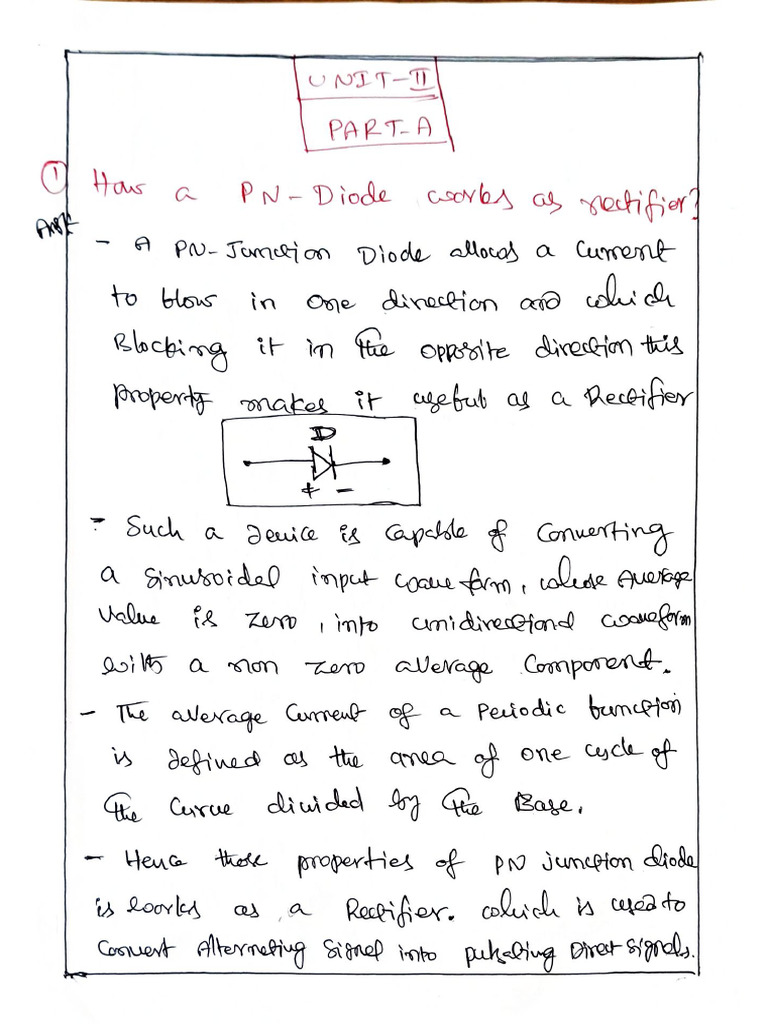 UNIT-II
PART-A
① How a PN-Diode works as rectifier?
Ans:-
- A PN-Junction Diode allows a current
to blow in one direction and which
Blocking it in the opposite direction this
property makes it useful as a Rectifier
D
+ -
- Such a device is capable of converting
a sinusoidal input wave form, whose Average
value is zero, into unidirectional waveform
with a non zero average component.
- The average current of a periodic function
is defined as the area of one cycle of
the curve divided by the Base.
- Hence these properties of PN junction diode
is works as a Rectifier. which is used to
convert Alternating signal into pulsating Direct signals.